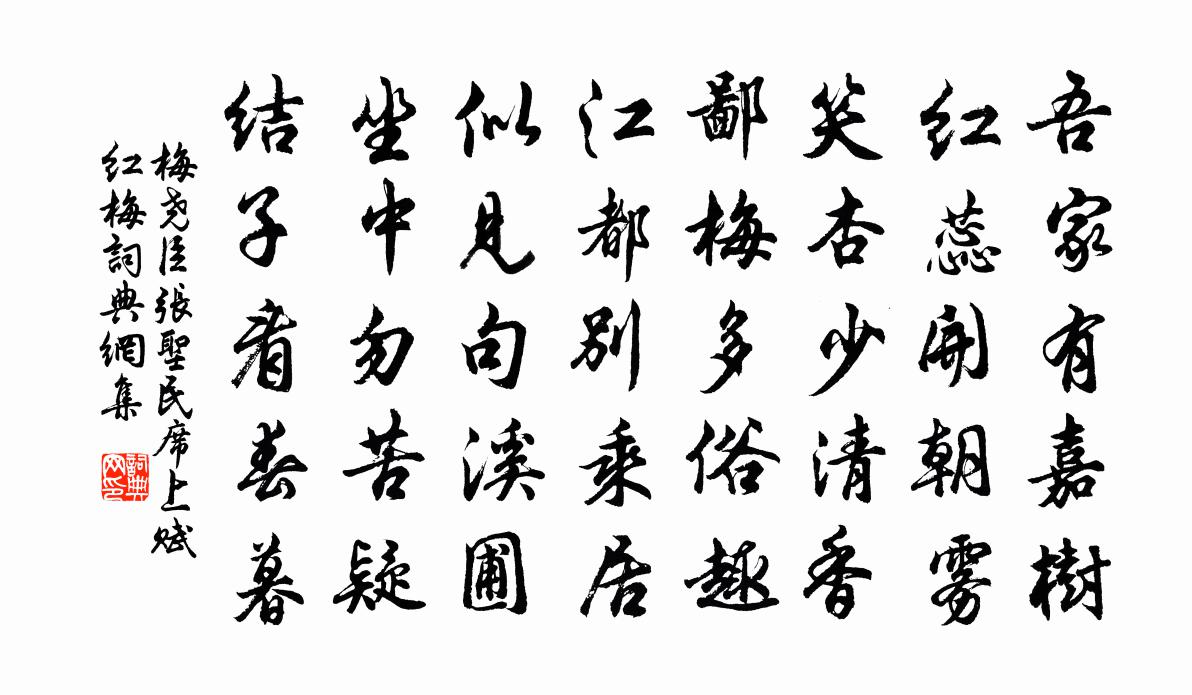 吾家有嘉樹
红蕊開朝雾
笑杏少清香
鄙梅多俗趣
江都别乘居
似見句溪圃
坐中勿苦疑
结子看春暮
梅尧臣張聖民席上赋
红梅詞典網集
詞典网印